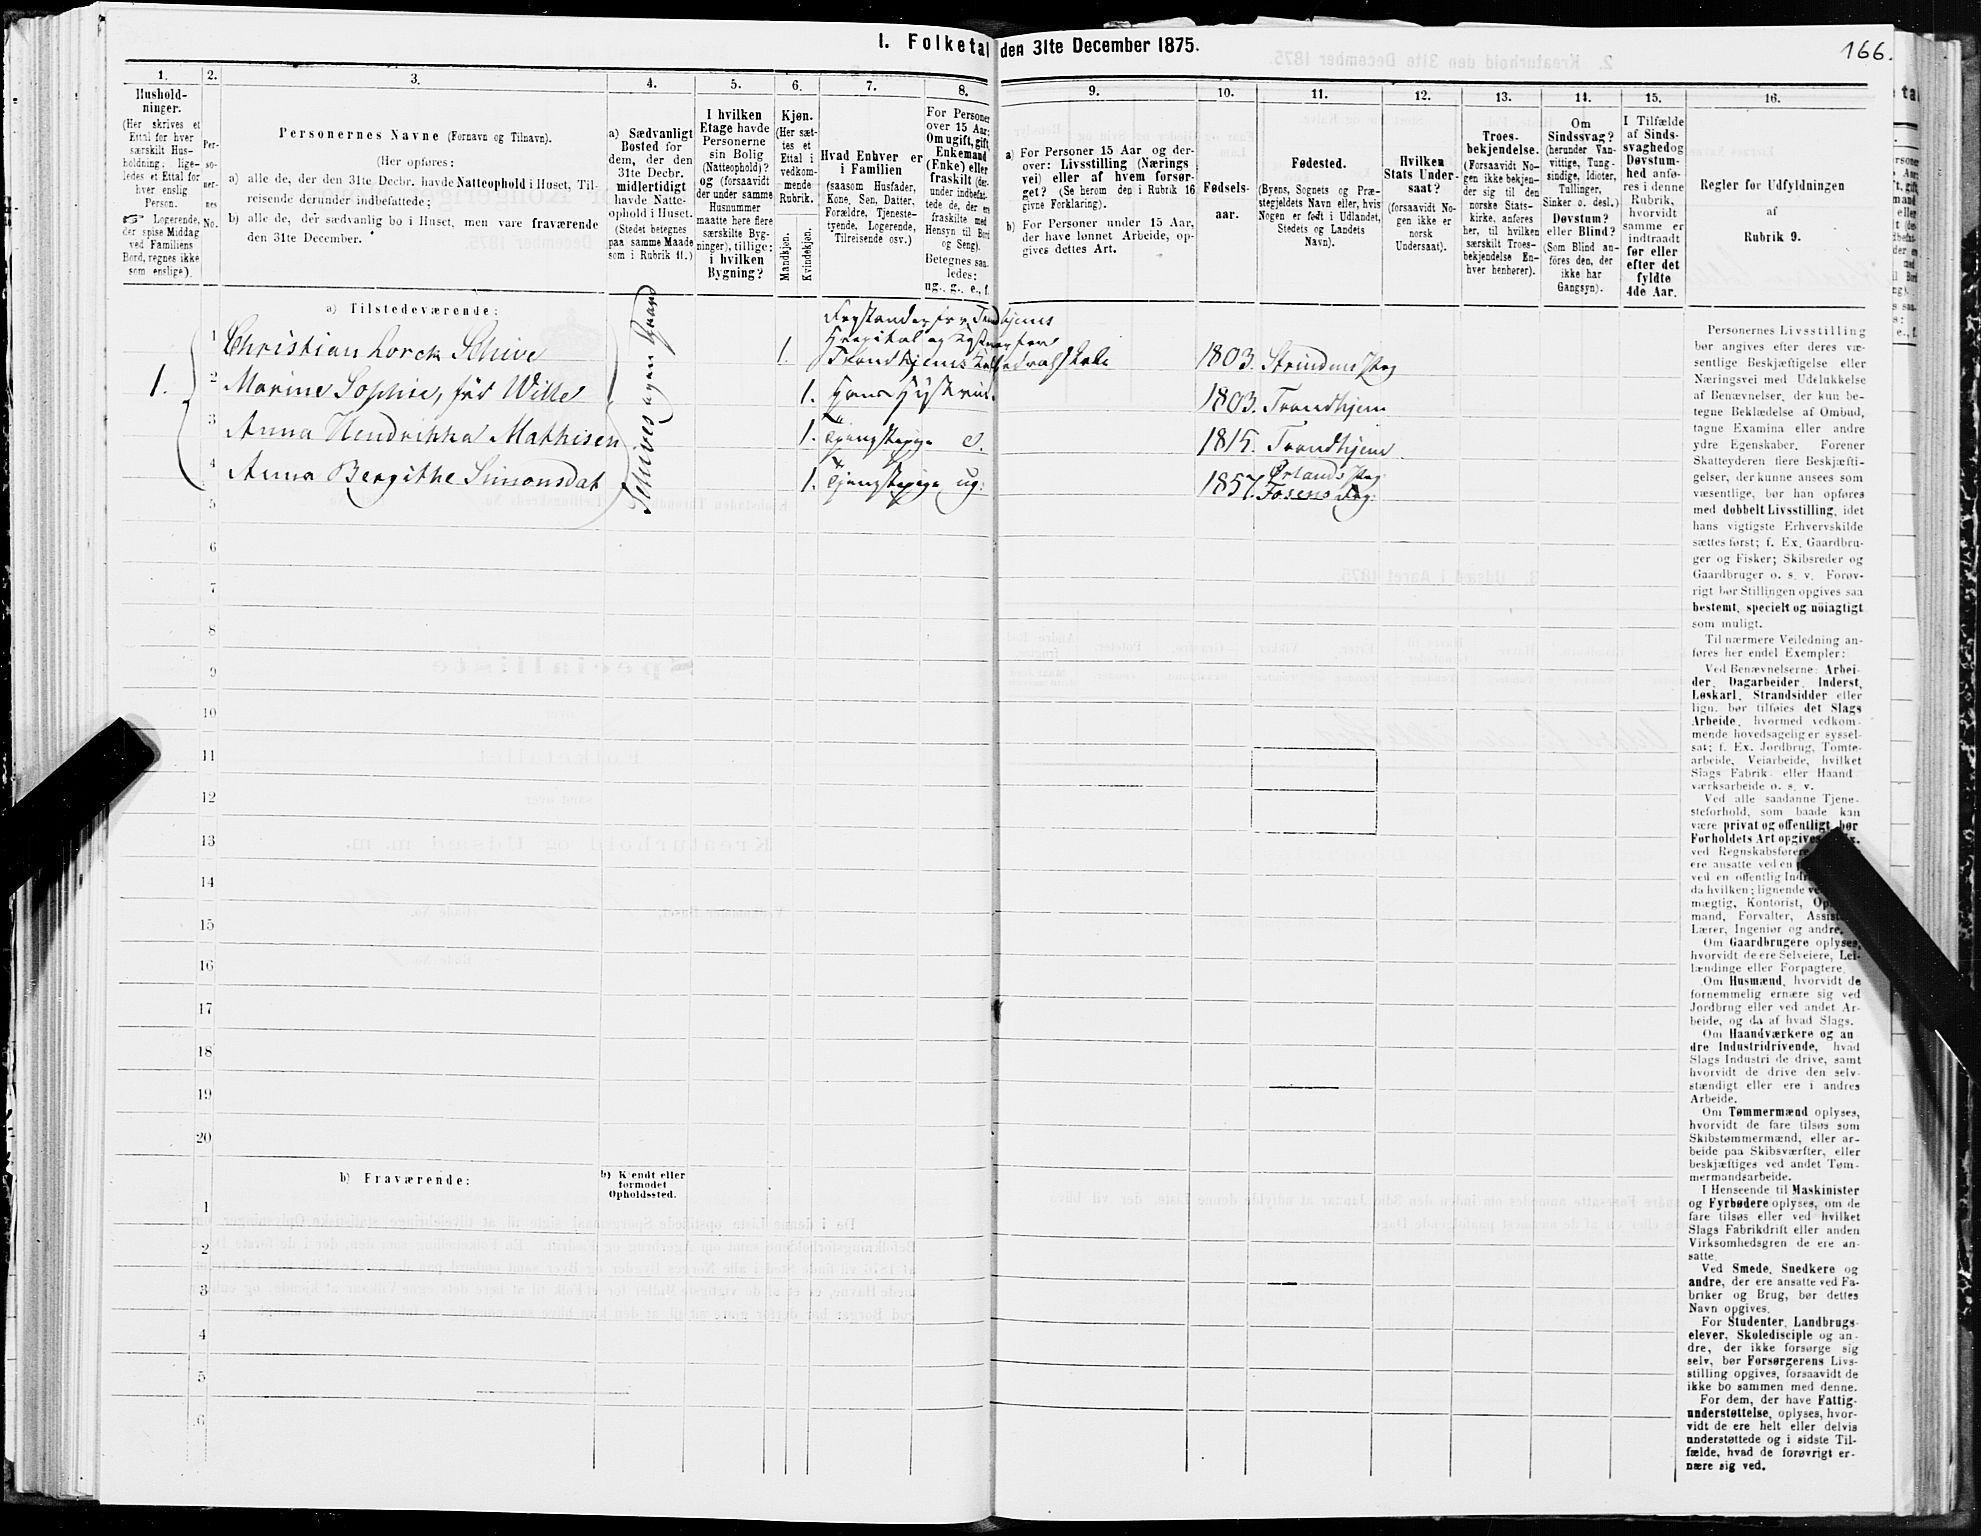 I. Folketal den 31te December 1875.
166.
1.
Hushold-
ninger.
(Her skrives et
Ettal for hver
særskilt Hus-
holdning; lige-
ledes et Ettal for
hver enslig
Person.
☞ Logerende,
der spise Middag
ved Familiens
Bord, regnes ikke
som enslige).
2.
Per-
so-
ner-
nes
No.
3.
Personernes Navne (Fornavn og Tilnavn).
(Her opføres:
a) alle de, der den 31te Decbr. havde Natteophold i Huset, Til-
reisende derunder indbefattede;
b) alle de, der sædvanlig bo i Huset, men vare fraværende
den 31te December.
4.
a) Sædvanligt
Bosted for
dem, der den
31te Decbr.
midlertidigt
havde Natte-
ophold i Huset.
(Stedet betegnes
paa samme Maade
som i Rubrik 11.)
5.
I hvilken
Etage havde
Personerne
sin Bolig
(Natteophold)?
og (forsaavidt
der under samme
Husnummer
maatte here flere
særskilte Byg-
ninger), tillige:
i hvilken
Bygning?
6.
Kjøn.
(Her sæt-
tes et
Ettal i
vedkom-
mende
Rubrik.
Mandkjøn.
Kvindekjøn.
7.
Hvad Enhver er
i Familien
(saasom Husfader,
Kone, Søn, Datter,
Forældre, Tjeneste-
tyende, Logerende,
Tilreisende osv.)
8.
For Personer
over 15 Aar:
Om ugift, gift,
Enkemand
(Enke) eller
fraskilt (der-
under indbefat-
tede de, der ere
fraskilte med
Hensyn til Bord
og Seng).
Betegnes saa-
ledes:
ug., g., e., f.
9.
a) For Personer 15 Aar og der-
over: Livsstilling (Nærings
vei) eller af hvem forsør-
get? (Se herom den i Rubrik 16
givne Forklaring).
b) For Personer under 15 Aar,
der have lønnet Arbeide, op-
gives dettes Art.
10.
Fødsels-
aar.
11.
Fødested.
(Byens, Sognets og Præ-
stegjeldets Navn eller, hvis
Nogen er født i Udlandet,
Stedets og Landets
Navn).
12.
Hvilken
Stats Under-
saat?
(forsaavidt No-
gen ikke er
norsk
Undersaat).
13.
Troes-
bekjendelse.
(Forsaavidt No-
gen ikke bekjen-
der sig til den
norske Stats-
kirke, anføres
her, til hvilken
særskilt Troes-
bekjendelse En-
hver henhører).
14.
Om
Sindssvag?
(herunder Van-
vittige, Tung-
sindige, Idioter,
Tullinger,
Sinker o. desl.)
Døvstum?
eller Blind?
(Som Blind an-
føres den, der
ikke har
Gangsyn).
15.
I Tilfælde
af Sinds-
svaghed og
Døvstum-
hed anfø-
res i denne
Rubrik,
hvorvidt
samme er
indtraadt
før eller
efter det
fyldte
4de Aar.
16.
Regler for Udfyldningen
af
Rubrik 9.
a) Tilstedeværende:
1.
1 Christian Lorck Schive 1. Forstander for Trondhjems
Hospital og Kasserer for
Trondhjems Kathedralskole 1803. Strindens Prg
2 Marine Sophie, fød Wille 1. Hans Hustru. 1803. Trondhjem
3 Anna Hendrikka Mathisen 1. Tjenestepige e. 1815. Trondhjem
4 Anna Bergithe Simonsdat 1. Tjenestepige ug. 1857. Ørlands Prg
Fosens Fog.
Schives egen Gaard
5
6
7
8
9
10
11
12
13
14
15
16
17
18
19
20
b) Fraværende:
b) Kjendt eller
formodet
Opholdssted.
1
2
3
4
5
6
Personernes Livsstilling
bør angives efter deres væ-
sentlige Beskjæftigelse eller
Næringsvei med Udelukkelse
af Benævnelser, der kun be-
tegne Beklædelse af Ombud,
tagne Examina eller andre
ydre Egenskaber. Forener
Skatteyderen flere Beskjæfti-
gelser, der kunne ansees som
væsentlige, bør han opføres
med dobbelt Livsstilling, idet
hans vigtigste Erhvervskilde
sættes først; f. Ex. Gaardbru-
ger og Fisker; Skibsreder og
Gaardbruger o. s. v. Forøv-
rigt bør Stillingen opgives saa
bestemt, specielt og nøiagtigt
som muligt.
Til nærmere Veiledning an-
føres her endel Exempler:
Ved Benævnelserne: Arbei-
der, Dagarbeider, Inderst,
Løskarl, Strandsidder eller
lign. bør tilføies det Slags
Arbeide, hvormed vedkom-
mende hovedsagelig er syssel-
sat; f. Ex. Jordbrug, Tomte-
arbeide, Veiarbeide, hvilket
Slags Fabrik- eller Haand-
værksarbeide o. s. v.
Ved alle saadanne Tjene-
steforhold, som baade kan
være privat og offentligt, bør
Forholdets Art opgives
ved Regnskabsførere
ere ansatte ved en
ved en offentlig
da hvilken; lignende
mægtig, Kontorist,
mand, Forvalter,
Lærer, Ingeniør og andre.
Om Gaardbrugere oplyses,
hvorvidt de ere Selveiere, Lei-
lændinge eller Forpagtere.
Om Husmænd, hvorvidt de
fornemmelig ernære sig ved
Jordbrug eller ved andet Ar-
beide, og da af hvad Slags.
Om Haandværkere og an
dre Industridrivende, hvad
Slags Industri de drive, samt
hvorvidt de drive den selv-
stændigt eller ere i andres
Arbeide.
Om Tømmermænd oplyses,
hvorvidt de fare tilsøs som
Skibstømmermænd, eller ar-
beide paa Skibsværfter, eller
beskjæftiges ved andet Tøm-
mermandsarbeide.
I Henseende til Maskinister
og Fyrbødere oplyses, om de
fare tilsøs eller ved hvilket
Slags Fabrikdrift eller anden
Virksomhedsgren de ere an-
satte.
Ved Smede, Snedkere og
andre, der ere ansatte ved Fa-
briker og Brug, bør dettes
Navn opgives.
For Studenter, Landbrugs-
elever, Skoledisciple og an-
dre, der ikke forsørge sig
selv, bør Forsørgerens Livs-
stilling opgives, forsaavidt de
ikke bo sammen med denne.
For dem, der have Fattig-
understøttelse, oplyses, hvor-
vidt de ere helt eller delvis
understøttede og i sidste Til-
fælde, hvad de forøvrigt er-
nære sig ved.